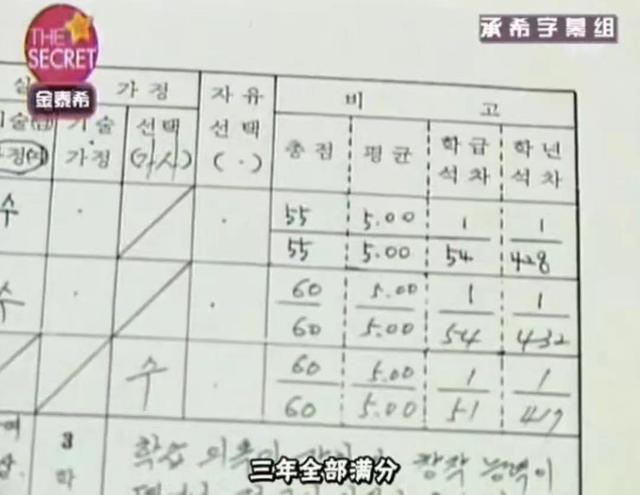 THE
SECRET
金泰希
承希字幕组
가 정
자 유
비 고
기 술
선 택
선 택
총 점
평 균
학 급
학 년
가 정
(가사)
( · )
석 차
석 차
수
55
5.00
1
1
55
5.00
54
428
수
60
5.00
1
1
60
5.00
54
432
수
60
5.00
1
1
60
5.00
51
419
3
학
학습 의욕이
창작 능력이
三年全部满分